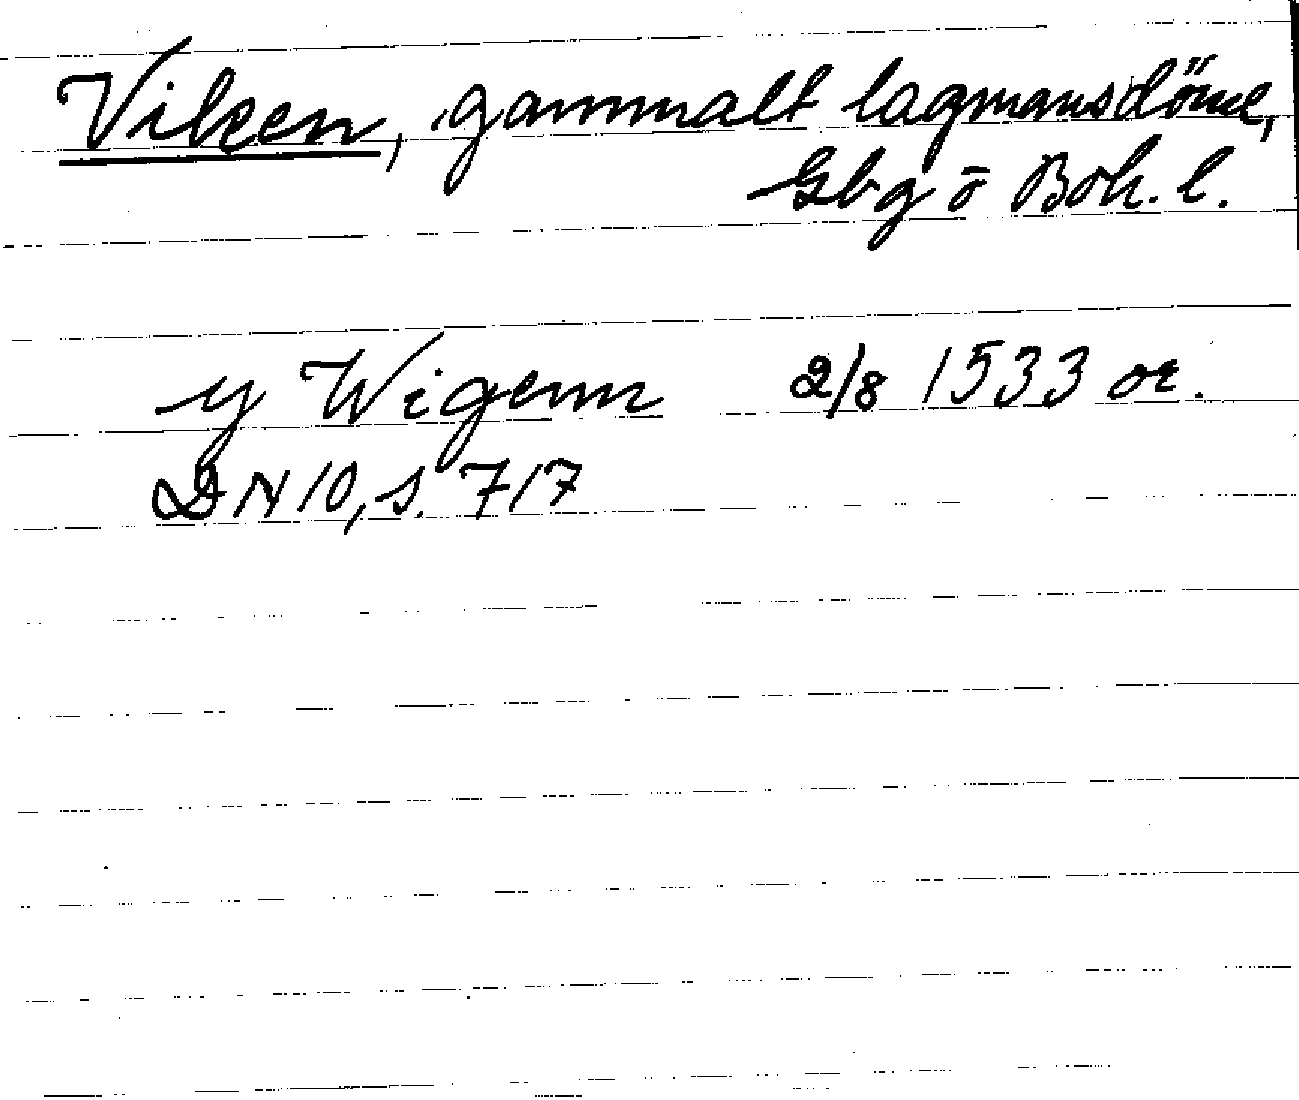 Viken, gammalt lagmansdöme,
Gbg o Boh. l.
y Wigenn 2/8 1533 or.
DN 10, s. 717